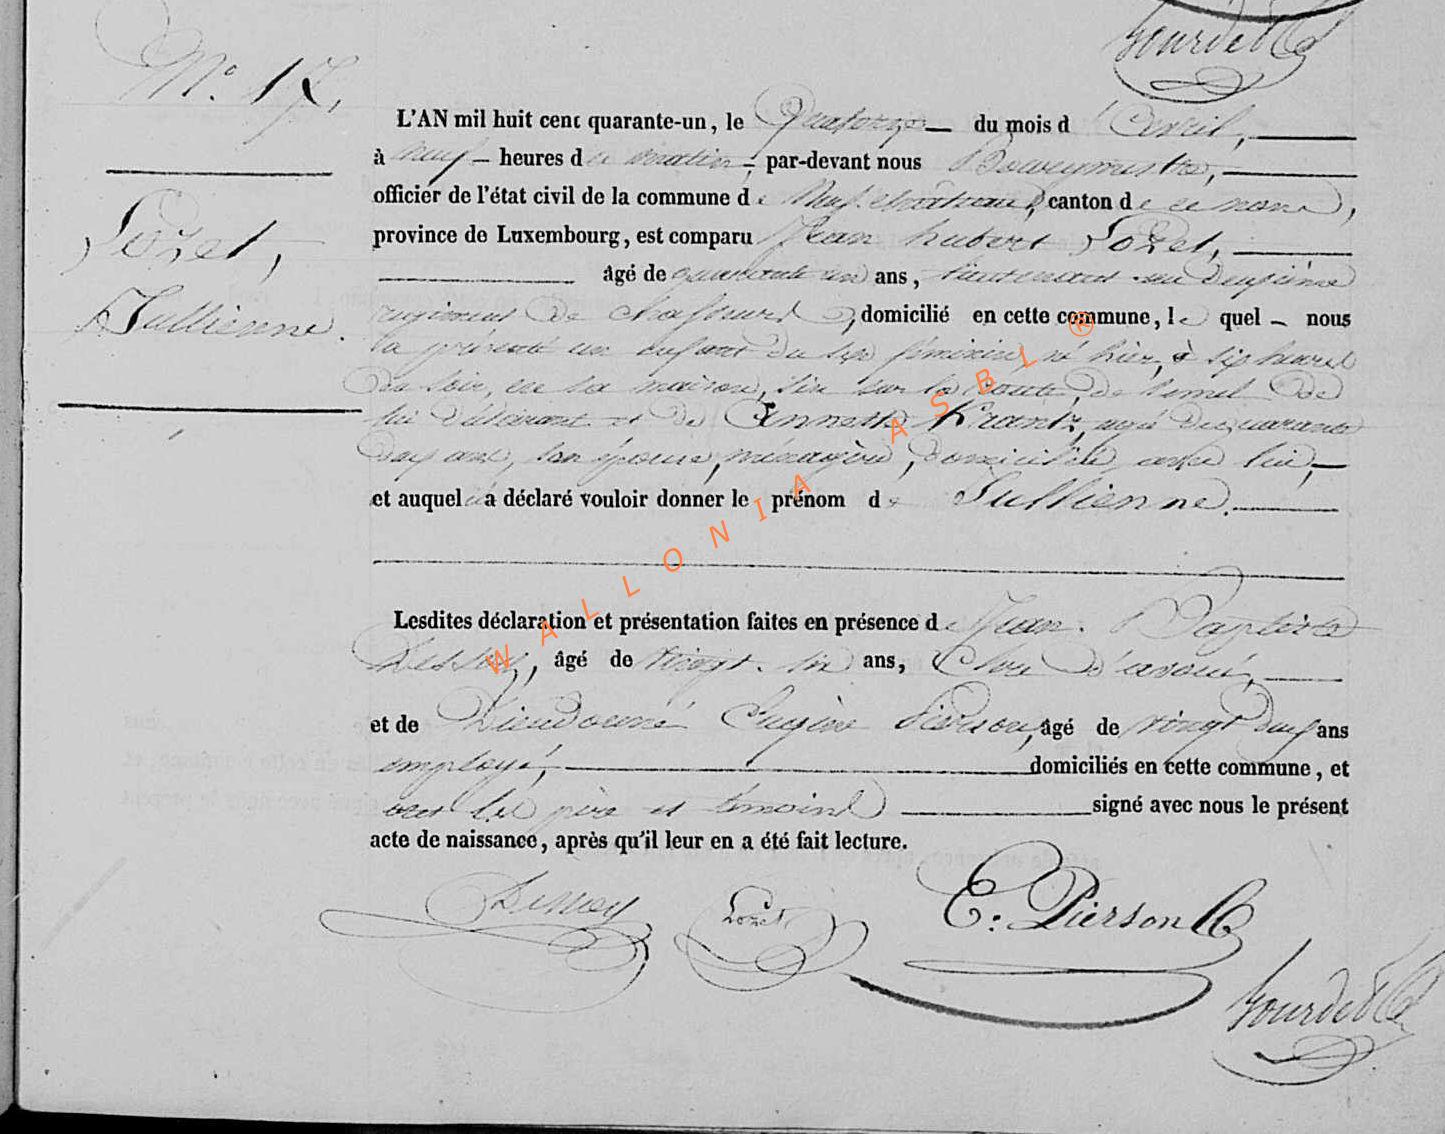 Gourdet
N.° 17.
L'AN mil huit cent quarante-un, le Quatorze du mois d'Avril,
à neuf heures du matin, par-devant nous Bourgmestre,
officier de l'état civil de la commune de Neufchâteau, canton de ce nom,
Lozet,
province de Luxembourg, est comparu Jean hubert Lozet,
âgé de quarante un ans, lieutenant au deuxième
Jullienne.
régiment de chasseurs, domicilié en cette commune, le quel nous
a présenté un enfant du sexe féminin, né hier, à six heures
du soir, en sa maison, sise sur la route, de
lui déclarant et de Annette Krantz, agée de quarante
deux ans, son épouse, ménagère, domiciliée avec lui,
et auquel il a déclaré vouloir donner le prénom de Jullienne.
Lesdites déclaration et présentation faites en présence de Jean Baptiste
Dessoy, âgé de vingt six ans, Clerc d'avoué,
et de Dieudonné Eugène Pierson, âgé de vingt deux ans
employé, domiciliés en cette commune, et
ont les père et témoins signé avec nous le présent
acte de naissance, après qu'il leur en a été fait lecture.
Dessoy Lozet E. Pierson
Gourdet
WALLONIA ASBL ®